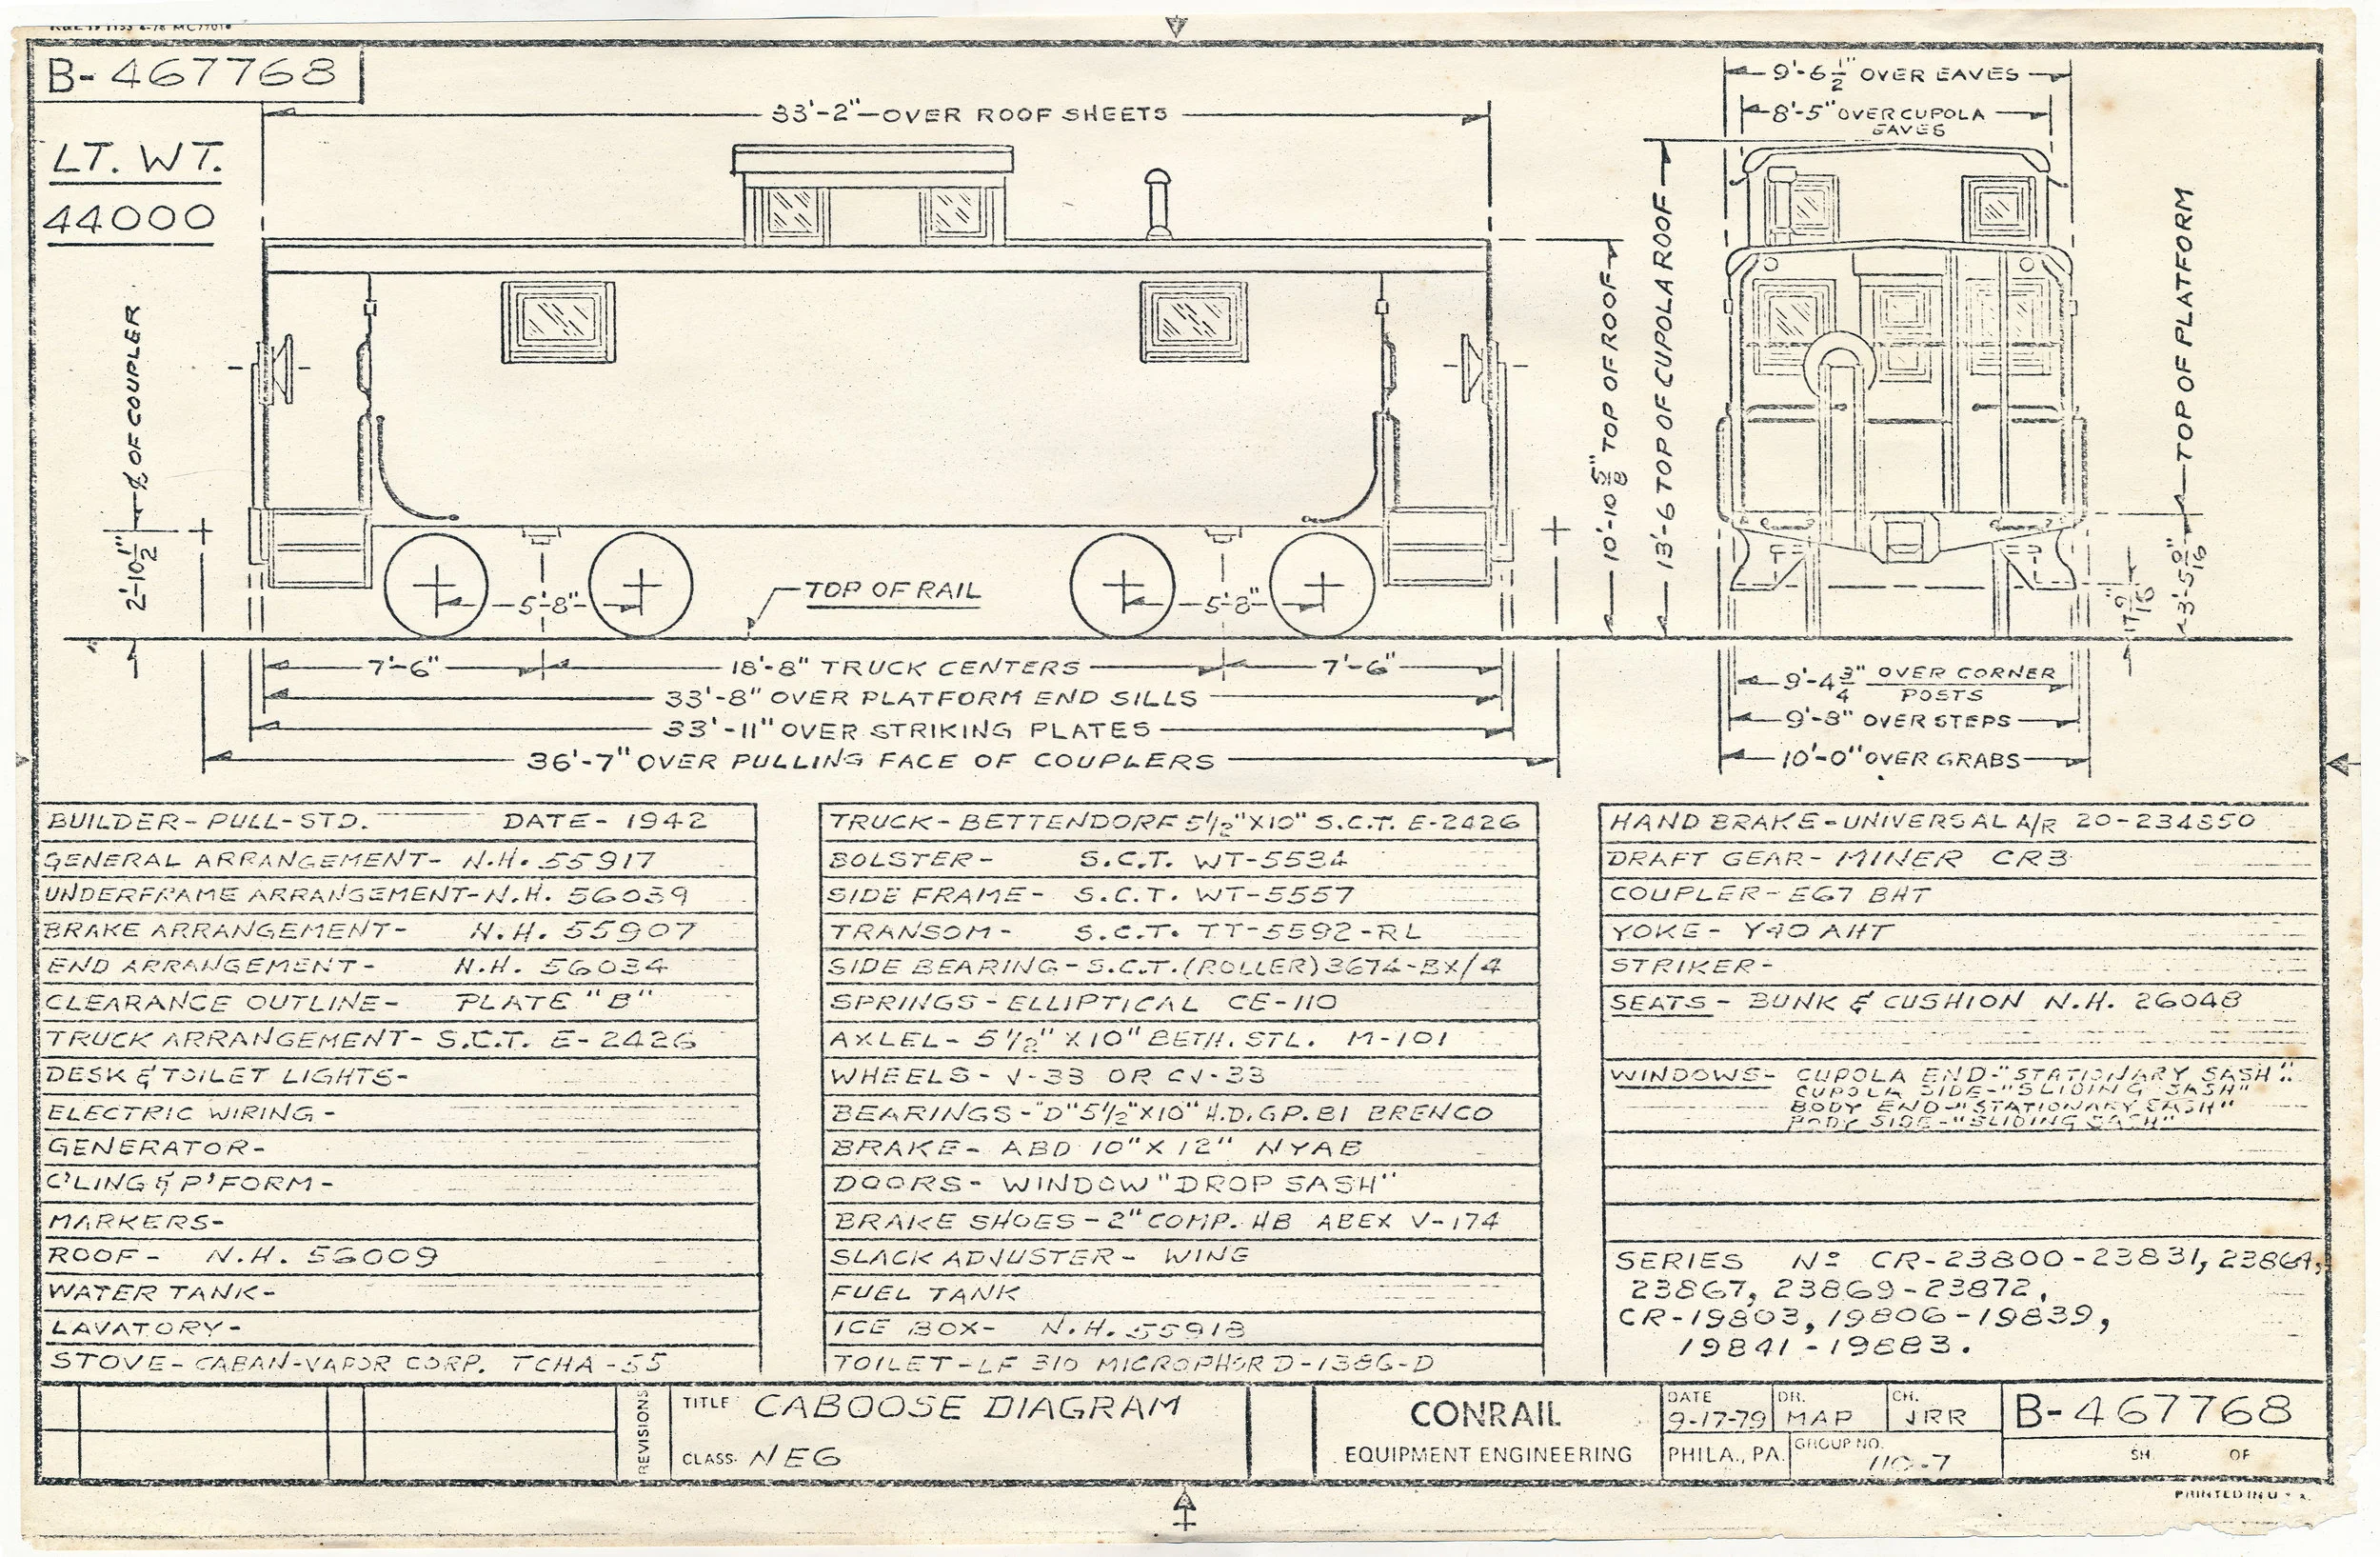 B-467768
LT. WT.
44000
33'-2"-OVER ROOF SHEETS
9'-6 1/2" OVER EAVES
8'-5" OVER CUPOLA
EAVES
2'-10 1/2" ℄ OF COUPLER
10'-10 5/8" TOP OF ROOF
13'-6 TOP OF CUPOLA ROOF
3'-5 9/16" TOP OF PLATFORM
17 9/16"
5'-8"
TOP OF RAIL
5'-8"
7'-6" 18'-8" TRUCK CENTERS 7'-6"
33'-8" OVER PLATFORM END SILLS
33'-11" OVER STRIKING PLATES
36'-7" OVER PULLING FACE OF COUPLERS
9'-4 3/4" OVER CORNER
POSTS
9'-8" OVER STEPS
10'-0" OVER GRABS
BUILDER- PULL-STD. DATE- 1942
GENERAL ARRANGEMENT- N.H. 55917
UNDERFRAME ARRANGEMENT- N.H. 56039
BRAKE ARRANGEMENT- N.H. 55907
END ARRANGEMENT- N.H. 56034
CLEARANCE OUTLINE- PLATE "B"
TRUCK ARRANGEMENT- S.C.T. E-2426
DESK & TOILET LIGHTS-
ELECTRIC WIRING-
GENERATOR-
C'LING & P'FORM-
MARKERS-
ROOF- N.H. 56009
WATER TANK-
LAVATORY-
STOVE- CABAN-VAPOR CORP. TCHA-55
TRUCK- BETTENDORF 5 1/2" X 10" S.C.T. E-2426
BOLSTER- S.C.T. WT-5534
SIDE FRAME- S.C.T. WT-5557
TRANSOM- S.C.T. TT-5592-RL
SIDE BEARING- S.C.T. (ROLLER) 3674-BX/4
SPRINGS- ELLIPTICAL CE-110
AXLEL- 5 1/2" X 10" BETH. STL. M-101
WHEELS- V-33 OR CV-33
BEARINGS- "D" 5 1/2" X 10" H.D. GP. B1 BRENCO
BRAKE- ABD 10" X 12" NYAB
DOORS- WINDOW "DROP SASH"
BRAKE SHOES- 2" COMP. HB ABEX V-174
SLACK ADJUSTER- WING
FUEL TANK
ICE BOX- N.H. 55918
TOILET- LF 310 MICROPHOR D-1386-D
HAND BRAKE- UNIVERSAL A/R 20-234850
DRAFT GEAR- MINER CR3
COUPLER- E67 BHT
YOKE- Y40 AHT
STRIKER-
SEATS- BUNK & CUSHION N.H. 26048
WINDOWS- CUPOLA END-"STATIONARY SASH"
CUPOLA SIDE-"SLIDING SASH"
BODY END-"STATIONARY SASH"
BODY SIDE-"SLIDING SASH"
SERIES Nº CR-23800-23831, 23864,
23867, 23869-23872,
CR-19803, 19806-19839,
19841-19883.
REVISIONS
TITLE CABOOSE DIAGRAM
CLASS- NE6
CONRAIL
EQUIPMENT ENGINEERING
DATE 9-17-79
DR. MAP
CH. JRR
PHILA., PA.
GROUP NO. 110-7
B-467768
SH. OF
PRINTED IN U.S.A.